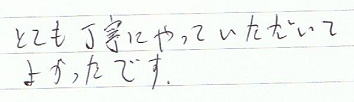 とても丁寧にやっていただいて
よかったです.